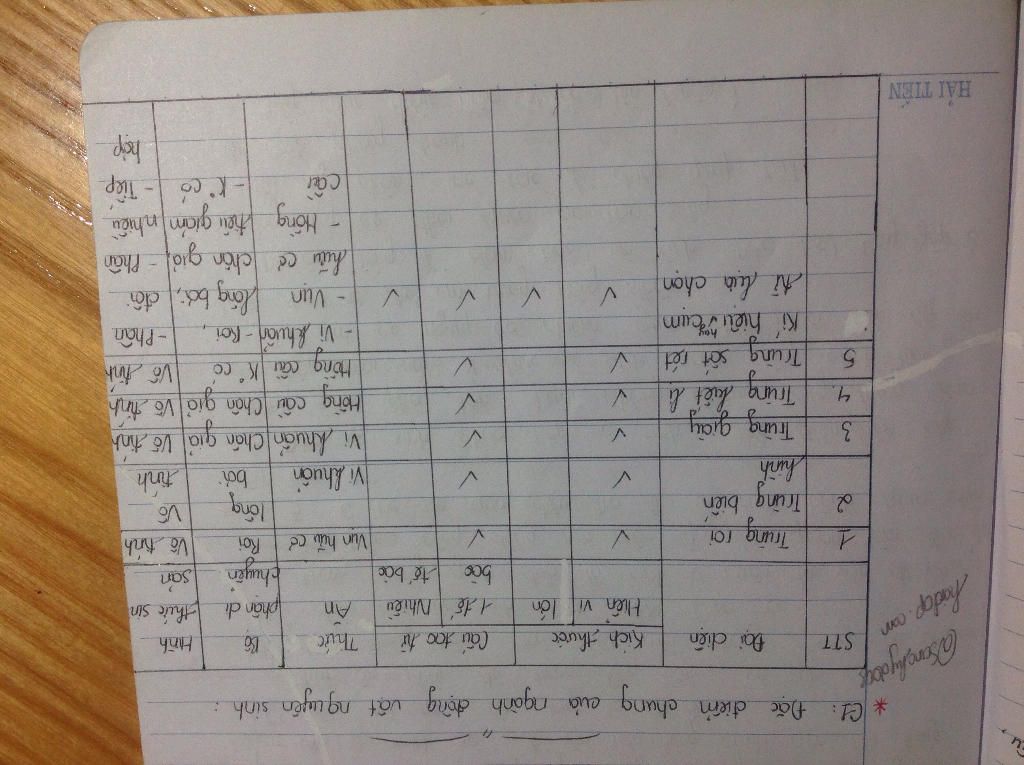 HẢI TIẾN
@sones/lydocs
hoidap.com
* C1: Đặc điểm chung của ngành động vật nguyên sinh:
STT Đại diện Kích thước Cấu tạo từ Thức Bộ Hình
Hiển vi lớn 1 tế Nhiều Ăn phận di thức sin
bào tế bào chuyển sản
1 Trùng roi ✓ ✓ Vụn hữu cơ Roi Vô tính
2 Trùng biến ✓ ✓ Vi khuẩn lông Vô
hình bơi tính
3 Trùng giày ✓ ✓ Vi khuẩn Chân giả Vô tính
4. Trùng kiết lị ✓ ✓ Hồng cầu Chân giả Vô tính
5 Trùng sốt rét ✓ ✓ Hồng cầu K° có Vô tính
Kí hiệu hay cụm ✓ ✓ ✓ ✓ - Vi khuẩn - Roi, - Phân
từ lựa chọn - Vụn lông bơi, đôi
hữu cơ chân giả, - Phân
- Hồng tiêu giảm nhiều
cầu - K° có - Tiếp
hợp